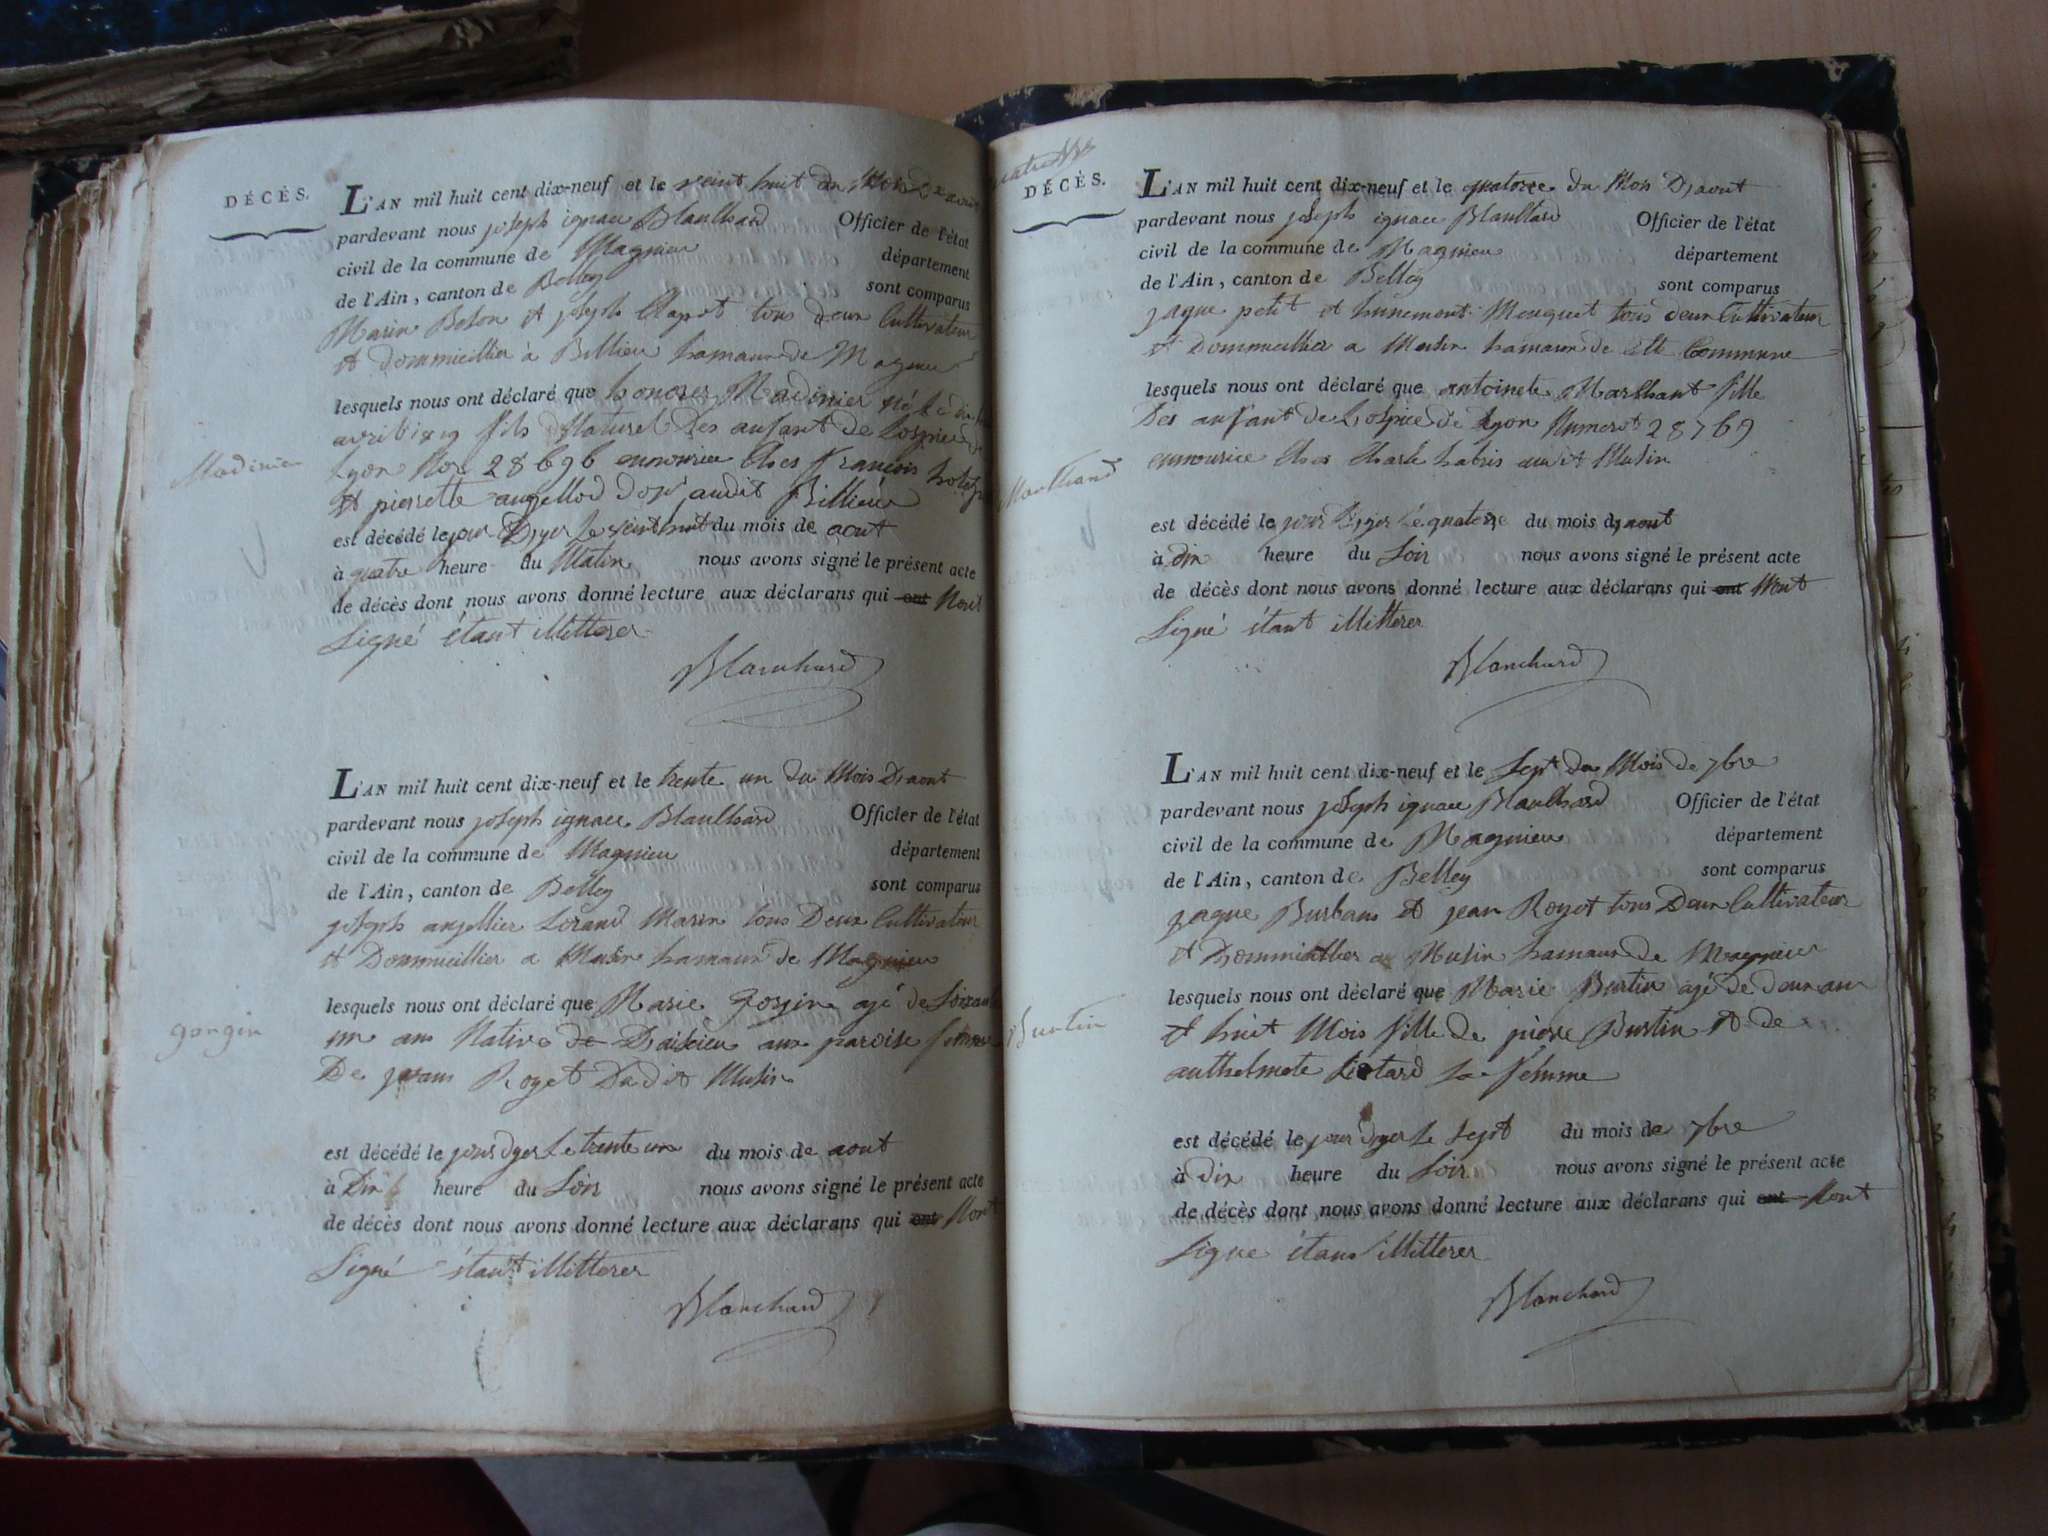 DÉCÈS.
L'AN mil huit cent dix-neuf et le veint huit du Mois D,aout
pardevant nous joseph ignace Blanchard Officier de l'état
civil de la commune de Magnieu département
de l'Ain, canton de Belley sont comparus
Marin Beton et joseph tous deux Cultivateur
et dommicillier à Billieu hamaux de Magnieu
lesquels nous ont déclaré que honores Madinier né le
avril 1819 fils Naturel Des anfant de Lospice de
Lyon No. 28696 ennourice Ches francois
Et pierrette audit Billieu
Madinier
est décédé le jour D,yer Le veint huit du mois de aout
à quatre heure du Matin nous avons signé le présent acte
de décès dont nous avons donné lecture aux déclarans qui ont Nont
Signé étant illitterer
Blanchard
L'AN mil huit cent dix-neuf et le trente un du Mois D,aout
pardevant nous joseph ignace Blanchard Officier de l'état
civil de la commune de Magnieu département
de l'Ain, canton de Belley sont comparus
joseph anjellier Lorand Marin tous Deux Cultivateur
et Dommicillier a Musin hamaux de Magnieu
lesquels nous ont déclaré que Marie gorgin agé de Soixante
un ans Native de aux paroise femme
De Royet Dudit Musin
gongin
est décédé le jours dyer Le trente un du mois de aout
à Dix heure du Soir nous avons signé le présent acte
de décès dont nous avons donné lecture aux déclarans qui ont Nont
Signé étant illitterer
Blanchard
DÉCÈS.
L'AN mil huit cent dix-neuf et le quatorze du Mois D,aout
pardevant nous joseph ignace Blanchard Officier de l'état
civil de la commune de Magnieu département
de l'Ain, canton de Belley sont comparus
jaque petit et Mouquet tous deux Cultivateur
et Dommicillier a Musin hamaux de Commune
lesquels nous ont déclaré que antoinete Marchant fille
Des anfant de Lospice de Lyon Numerot 28769
ennourice Ches Charle audit Musin
Marchand
est décédé le jour D,yer Le quatorze du mois d,aout
à dix heure du Soir nous avons signé le présent acte
de décès dont nous avons donné lecture aux déclarans qui ont Nont
Signé étant illitterer
Blanchard
L'AN mil huit cent dix-neuf et le Sept du Mois de 7bre
pardevant nous joseph ignace Blanchard Officier de l'état
civil de la commune de Magnieu département
de l'Ain, canton de Belley sont comparus
jaque Burbans et jean Royet tous Deux Cultivateur
et Dommicillier a Musin hamaux de Magnieu
lesquels nous ont déclaré que Marie Burtin agé de deux ans
et huit Mois fille de pierre Burtin et de
anthelmete Liotard Sa femme
Burtin
est décédé le jour dyer Le Sept du mois de 7bre
à dix heure du Soir nous avons signé le présent acte
de décès dont nous avons donné lecture aux déclarans qui ont Nont
Signe étant illitterer
Blanchard